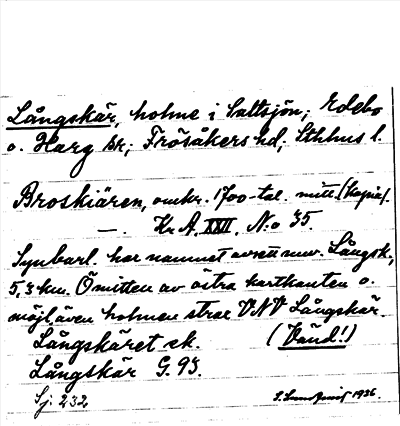 Långskär, holme i Saltsjön; Edebo
o. Harg skr; Frösåkers hd; Sthlms l.
Broskiären, omkr. 1700-tal. mitt. (kopia).
— Kr A, XXII, No 35.
Synbarl. har namnet avsett nuv. Långsk,
5,3 km. Ö mitten av östra kartkanten o.
möjl. även holmen strax VNV Långskär.
Långskäret ek. (Vänd!)
Långskär G. 95.
Sj. 232 1936.